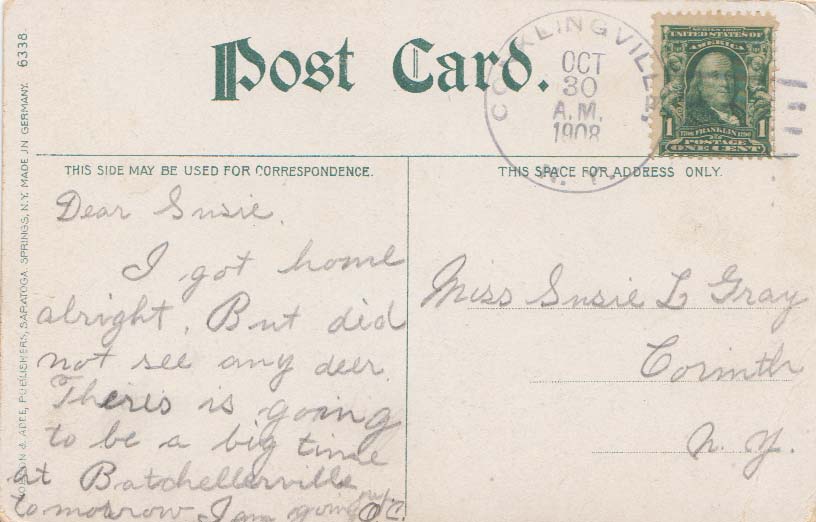 Post Card.
CONKLINGVILLE,
OCT
30
A.M.
1908
N. Y.
SERIES 1902
UNITED STATES OF
AMERICA
1706 FRANKLIN 1790
1 POSTAGE 1
ONE CENT
THIS SIDE MAY BE USED FOR CORRESPONDENCE.
THIS SPACE FOR ADDRESS ONLY.
Dear Susie.
I got home
alright. But did
not see any deer.
Theres is going
to be a big time
at Batchellerville
tomorrow I am going
O.C.
Miss Susie L Gray
Corinth
N. Y.
& ADEE, PUBLISHERS, SARATOGA SPRINGS, N.Y. MADE IN GERMANY. 6338